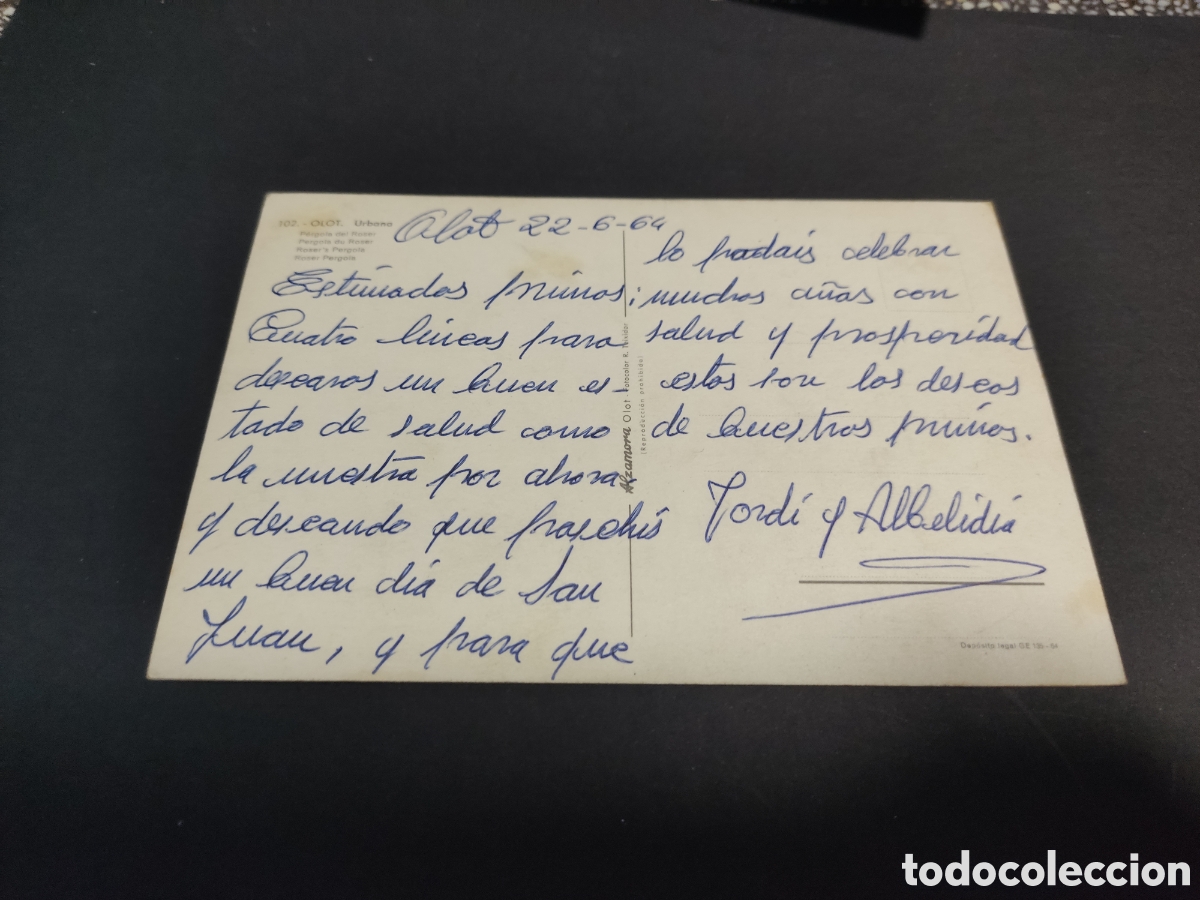 102. - OLOT. Urbano
Pérgola del Roser
Pergola du Roser
Roser's Pergola
Roser Pergola
Olot 22-6-64
Estimados primos:
Cuatro lineas para
desearos un buen es-
tado de salud como
la nuestra por ahora
y deseando que paséhis
un buen día de San
Juan, y para que
lo podais celebrar
muchos años con
salud y prosperidad
estos son los deseos
de buestros primos.
Jordi y Albelidia
Alzamora Olot Fotocolor R.
(Reproducción prohibida)
Depósito legal GE
todocoleccion